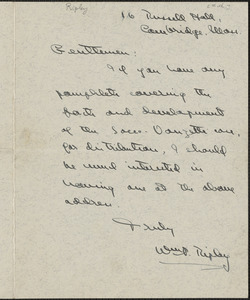 Ripley
16 Russell Hall,
Cambridge, Mass.
Gentlemen:
If you have any
pamphlets covering the
facts and development
of the Sacco-Vanzetti case,
for distribution, I should
be much interested in
having one at the above
address.
Truly
Wm. P. Ripley